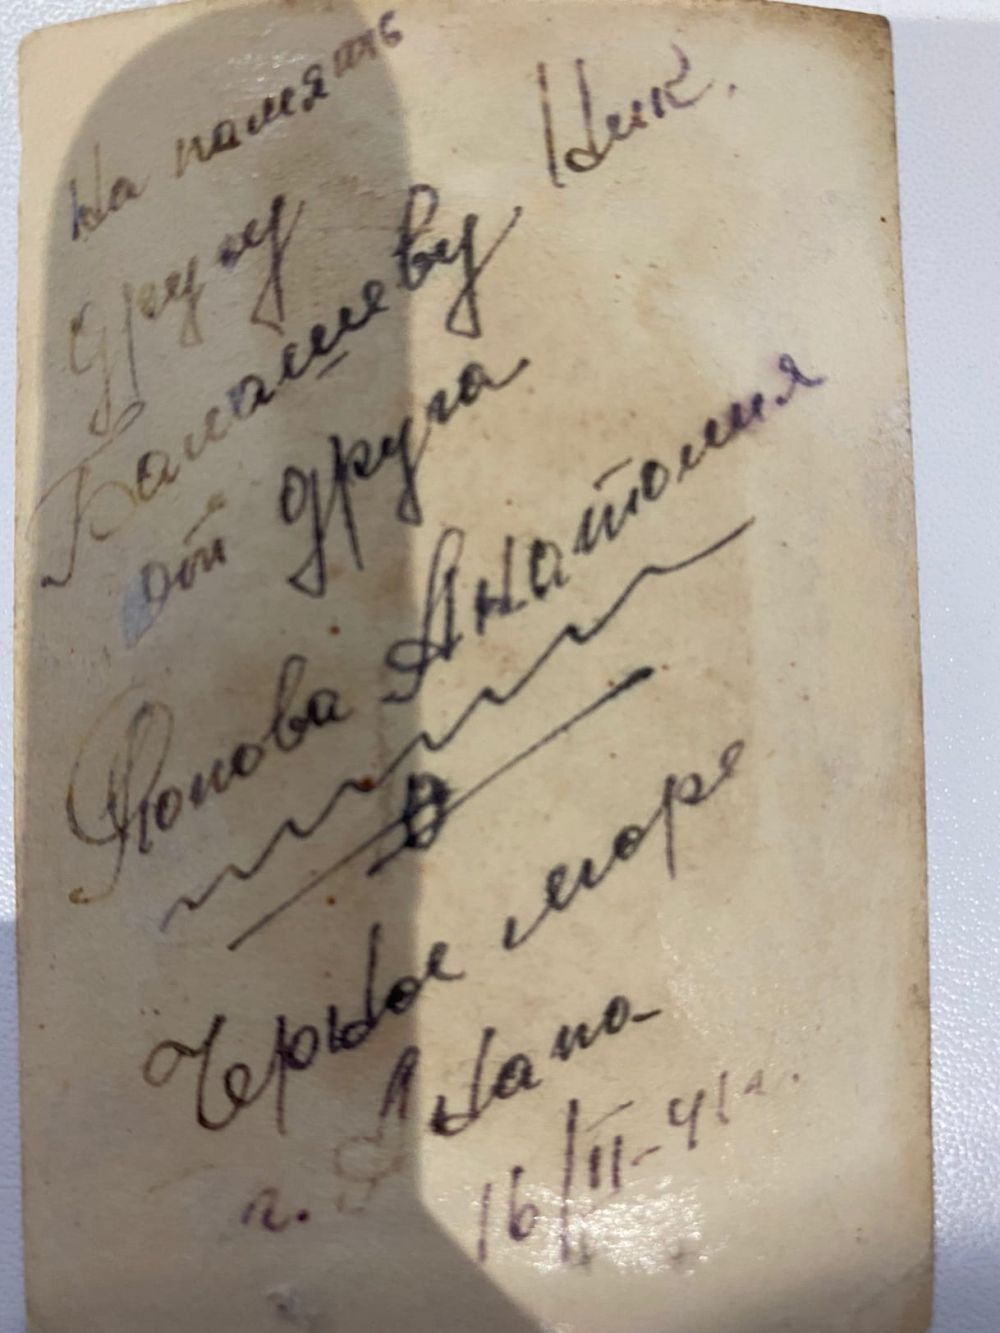 На память
другу
Балашеву Ник.
от друга
Попова Анатолия
Черное море
г. Анапа
16/II-41г.